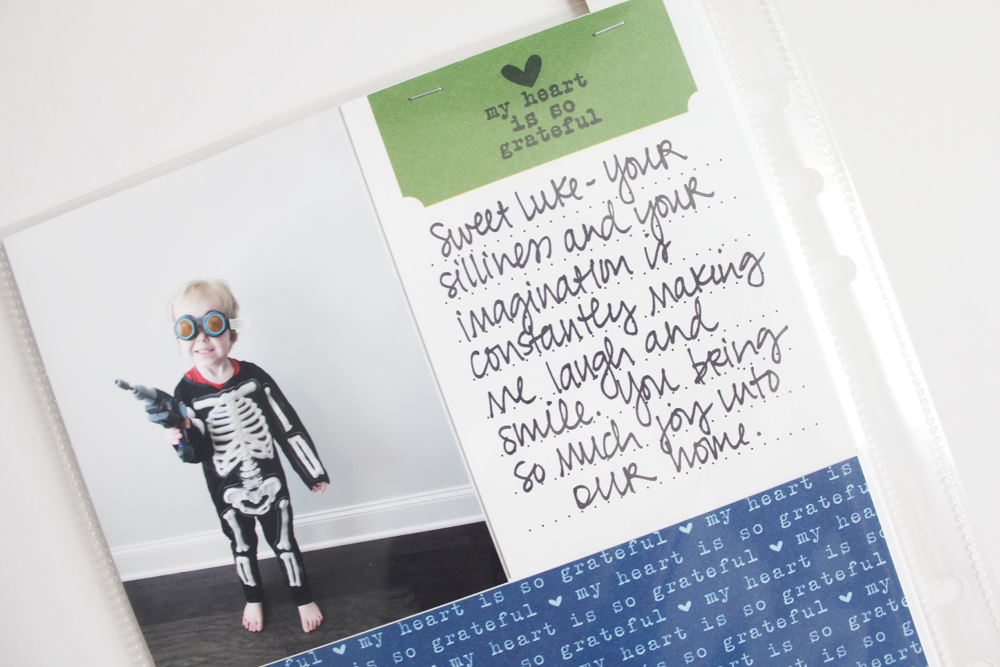 my heart
is so
grateful
Sweet Luke - your
silliness and your
imagination is
constantly making
me laugh and
smile. You bring
so much joy into
our home.
my heart is
my heart is so grateful ♥ my heart is so grateful
my heart is so grateful ♥ my heart is so grateful ♥ my hea
is so grateful ♥ my heart is so grateful ♥ my heart is so
grateful ♥ my heart is so grateful
my heart is so grate